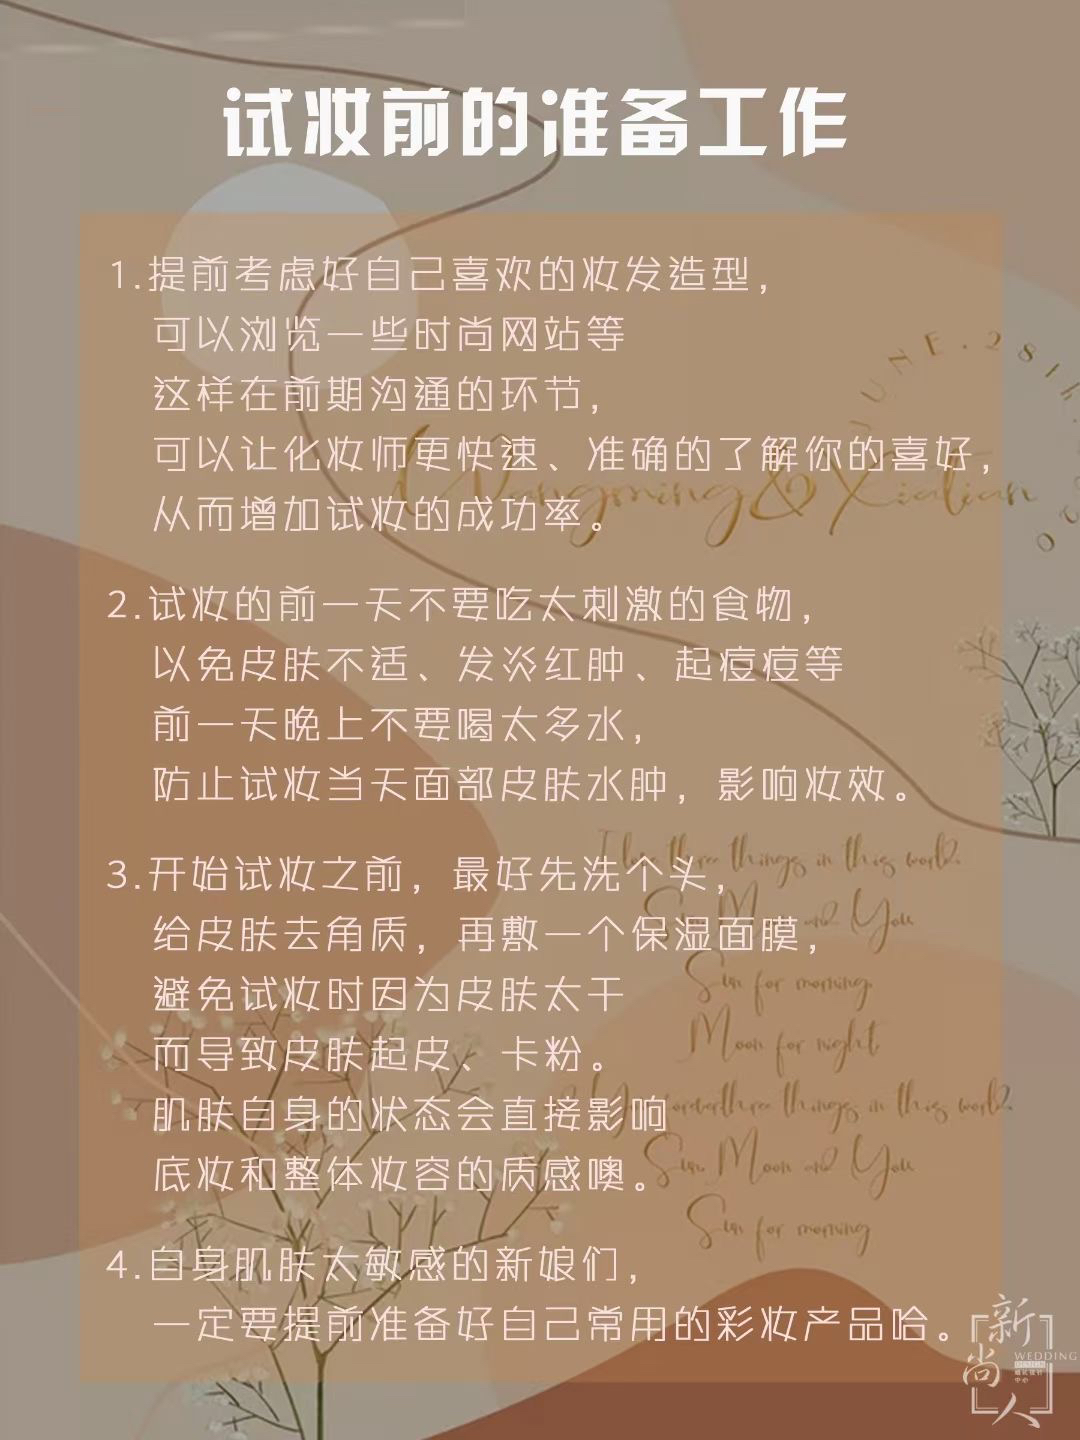 试妆前的准备工作
1.提前考虑好自己喜欢的妆发造型，
可以浏览一些时尚网站等
这样在前期沟通的环节，
可以让化妆师更快速、准确的了解你的喜好，
从而增加试妆的成功率。
JUNE.28th.
Wangming & Xiatian
2.试妆的前一天不要吃太刺激的食物，
以免皮肤不适、发炎红肿、起痘痘等
前一天晚上不要喝太多水，
防止试妆当天面部皮肤水肿，影响妆效。
3.开始试妆之前，最好先洗个头，
给皮肤去角质，再敷一个保湿面膜，
避免试妆时因为皮肤太干
而导致皮肤起皮、卡粉。
肌肤自身的状态会直接影响
底妆和整体妆容的质感噢。
I love three things in this world.
Sun Moon and You
Sun for morning
Moon for night
You forever three things in this world.
Sun Moon and You
Sun for morning
4.自身肌肤太敏感的新娘们，
一定要提前准备好自己常用的彩妆产品哈。
新尚人
WEDDING
DESIGN
婚礼设计
中心